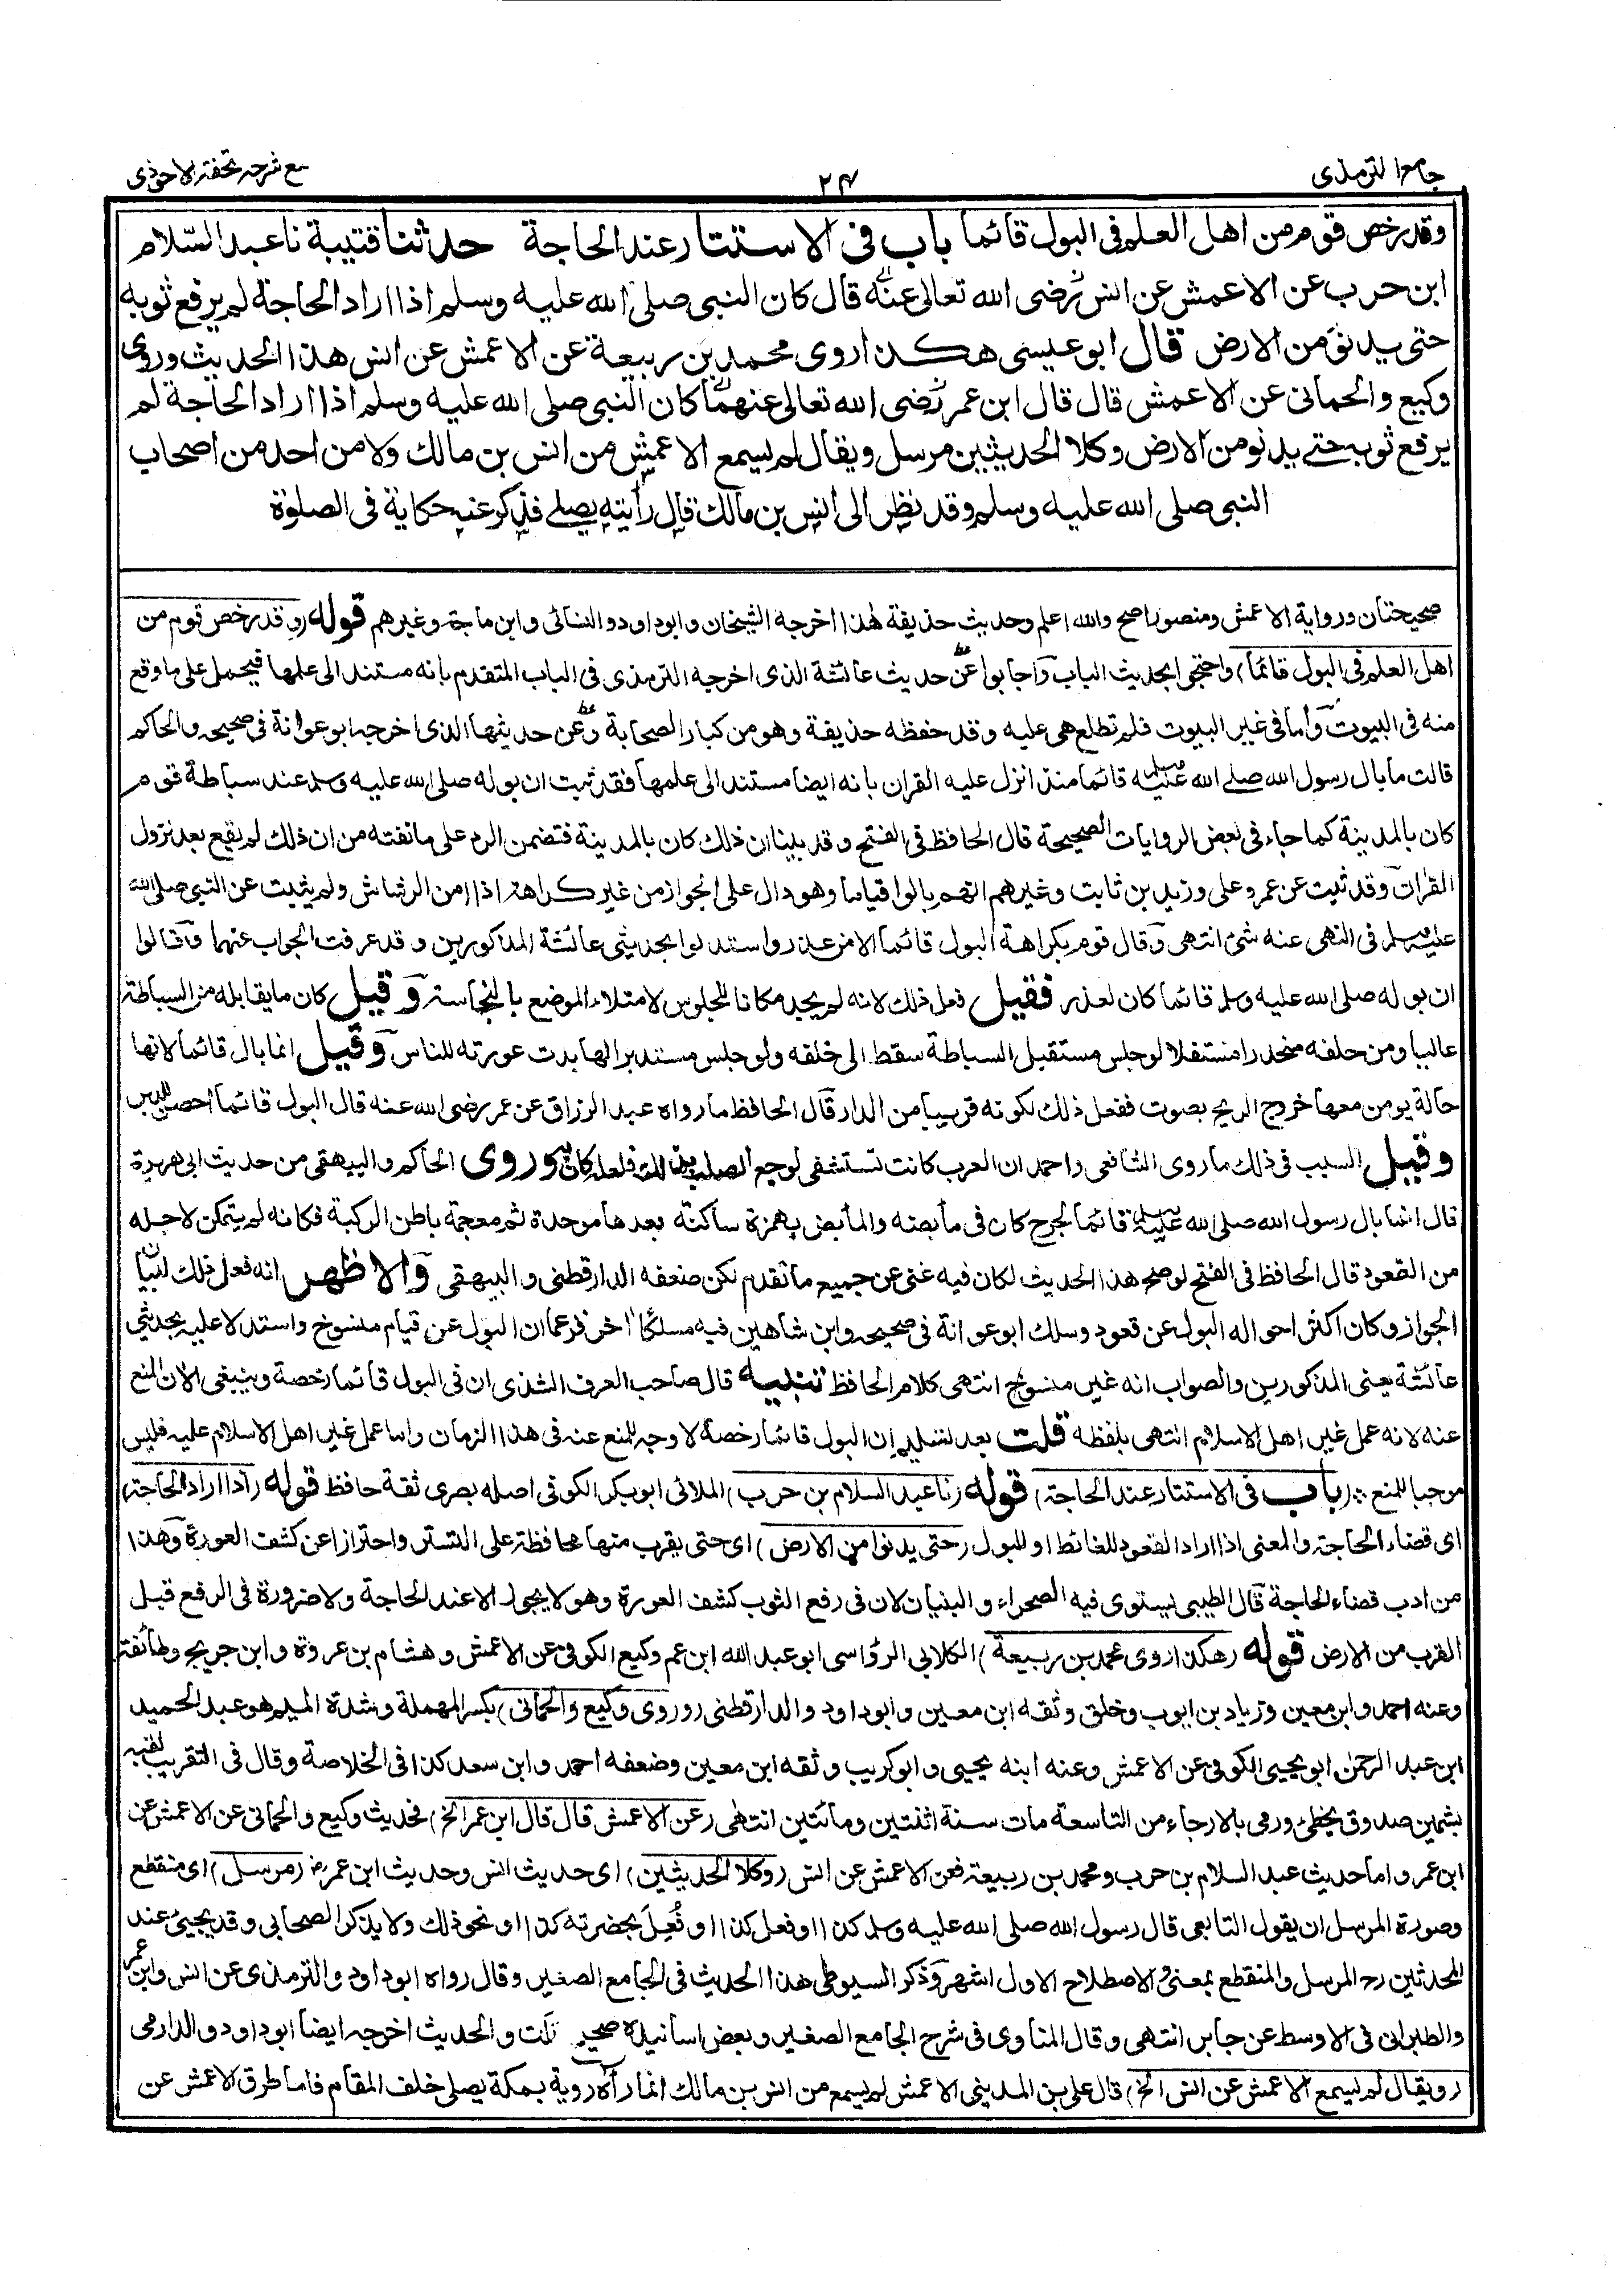 جامع الترمذى
٢٤
مع شرحہ تحفۃ الاحوذى
وقد رخص قوم من اهل العلم فى البول قائما باب فى الاستتار عند الحاجة حدثنا قتيبة نا عبد السّلام
ابن حرب عن الاعمش عن انس رضى الله تعالى عنه قال كان النبى صلى الله عليه وسلم اذا اراد الحاجة لم يرفع ثوبه
حتى يدنو من الارض قال ابو عيسى هكذا روى محمد بن ربيعة عن الاعمش عن انس هذا الحديث وروى
وكيع والحمانى عن الاعمش قال قال ابن عمر رضى الله تعالى عنهما كان النبى صلى الله عليه وسلم اذا اراد الحاجة لم
يرفع ثوبه حتے يدنو من الارض وكلا الحديثين مرسل ويقال لم يسمع الاعمش من انس بن مالك ولا من احد من اصحاب
النبى صلى الله عليه وسلم وقد نظر الى انس بن مالك قال رأيته يصلے فذكر عنه حكاية فى الصلوٰة
صحيحتان ورواية الاعمش ومنصور اصح والله اعلم وحديث حذيفة هٰذا اخرجه الشيخان وابوداود والنسائى وابن ماجة وغيرهم قوله (وقد رخص قوم من
اهل العلم فى البول قائما) واحتجوا بحديث الباب وأجابوا عن حديث عائشة الذى اخرجه الترمذى فى الباب المتقدم بانه مستند الى علمها فيحمل على ما وقع
منه فى البيوت وأما فى غير البيوت فلم تطلع هى عليه وقد حفظه حذيفة وهو من كبار الصحابة وعن حديثها الذى اخرجه ابو عوانة فى صحيحه والحاكم
قالت ما بال رسول الله صلے الله عليه وسلم قائما منذ انزل عليه القران بانه ايضا مستند الى علمها فقد ثبت ان بوله صلى الله عليه وسلم عند سباطة قوم
كان بالمدينة كما جاء فى بعض الروايات الصحيحة قال الحافظ فى الفتح وقد بينا ان ذلك كان بالمدينة فتضمن الرد على ما نفته من ان ذلك لم يقع بعد نزول
القران وقد ثبت عن عمر وعلى وزيد بن ثابت وغيرهم انهم بالوا قياما وهو دال على الجواز من غير كراهة اذا امن الرشاش ولم يثبت عن النبى صلى الله
عليه وسلم فى النهى عنه شئ انتهى وقال قوم بكراهة البول قائما الا من عذر واستدلوا بحديثى عائشة المذكورين وقد عرفت الجواب عنهما وقالوا
ان بوله صلى الله عليه وسلم قائما كان لعذر فقيل فعل ذلك لانه لم يجد مكانا للجلوس لامتلاء الموضع بالنجاسة وقيل كان ما يقابله من السباطة
عاليا ومن خلفه منحدرا مستفلا لو جلس مستقبل السباطة سقط الى خلفه ولو جلس مستدبرا لها بدت عورته للناس وقيل انما بال قائما لانها
حالة يومن معها خروج الريح بصوت ففعل ذلك لكونه قريبا من الدار قال الحافظ ما رواه عبد الرزاق عن عمر رضى الله عنه قال البول قائما احصن للدبر
وقيل السبب فى ذلك ما روى الشافعى واحمد ان العرب كانت تستشفى لوجع الصلب بذالك فلعله كان به وروى الحاكم والبيهقى من حديث ابى هريرة
قال انما بال رسول الله صلى الله عليه وسلم قائما لجرح كان فى مأبضه والمأبض بهمزة ساكنة بعدها موحدة ثم معجمة باطن الركبة فكانه لم يتمكن لاجله
من القعود قال الحافظ فى الفتح لو صح هذا الحديث لكان فيه غنى عن جميع ما تقدم لكن ضعفه الدارقطنى والبيهقى والاظهر انه فعل ذلك لبيان
الجواز وكان اكثر احواله البول عن قعود وسلك ابو عوانة فى صحيحه وابن شاهين فيه مسلكا اخر فزعما ان البول عن قيام منسوخ واستدلا عليه بحديثى
عائشة يعنى المذكورين والصواب انه غير منسوخ انتهى كلام الحافظ تنبيه قال صاحب العرف الشذى ان فى البول قائما رخصة وينبغى الان المنع
عنه لانه عمل غير اهل الاسلام انتهى بلفظه قلت بعد تسليم ان البول قائما رخصة لا وجه للمنع عنه فى هذا الزمان واما عمل غير اهل الاسلام عليه فليس
موجبا للمنع (باب فى الاستتار عند الحاجة) قوله (نا عبد السلام بن حرب) الملائى ابو بكر الكوفى اصله بصرى ثقة حافظ قوله (اذا اراد الحاجة)
اى قضاء الحاجة والمعنى اذا اراد القعود للغائط او للبول (حتى يدنو من الارض) اى حتى يقرب منها محافظة على التستر واحترازا عن كشف العورة وهذا
من ادب قضاء الحاجة قال الطيبى يستوى فيه الصحراء والبنيان لان فى رفع الثوب كشف العورة وهو لا يجوز الا عند الحاجة ولا ضرورة فى الرفع قبل
القرب من الارض قوله (هكذا روى محمد بن ربيعة) الكلابى الرؤاسى ابو عبد الله ابن عم وكيع الكوفى عن الاعمش وهشام بن عروة وابن جريج وطائفة
وعنه احمد وابن معين وزياد بن ايوب وخلق وثقه ابن معين وابوداود والدارقطنى (وروى وكيع والحمانى) بكسر المهملة وشدة الميم هو عبد الحميد
ابن عبد الرحمٰن ابو يحيى الكوفى عن الاعمش وعنه ابنه يحيى وابو كريب وثقه ابن معين وضعفه احمد وابن سعد كذا فى الخلاصة وقال فى التقريب لقبه
بشمين صدوق يخطئ ورمى بالارجاء من التاسعة مات سنة اثنتين ومائتين انتهٰى (عن الاعمش قال قال ابن عمر الخ) فحديث وكيع والحمانى عن الاعمش عن
ابن عمر واما حديث عبد السلام بن حرب ومحمد بن ربيعة فعن الاعمش عن انس (وكلا الحديثين) اى حديث انس وحديث ابن عمر رض (مرسل) اى منقطع
وصورة المرسل ان يقول التابعى قال رسول الله صلى الله عليه وسلم كذا او فعل كذا او فُعِلَ بحضرته كذا او نحو ذلك ولا يذكر الصحابى وقد يجيئ عند
المحدثين رح المرسل والمنقطع بمعنى والاصطلاح الاول اشهر وذكر السيوطى هذا الحديث فى الجامع الصغير وقال رواه ابوداود والترمذى عن انس وابن عمر
والطبرانى فى الاوسط عن جابر انتهى وقال المناوى فى شرح الجامع الصغير وبعض اسانيده صحيح قلت والحديث اخرجه ايضا ابوداود والدارمى
(ويقال لم يسمع الاعمش عن انس الخ) قال على بن المدينى الاعمش لم يسمع من انس بن مالك انما رآه روية بمكة يصلى خلف المقام فاما طرق الاعمش عن